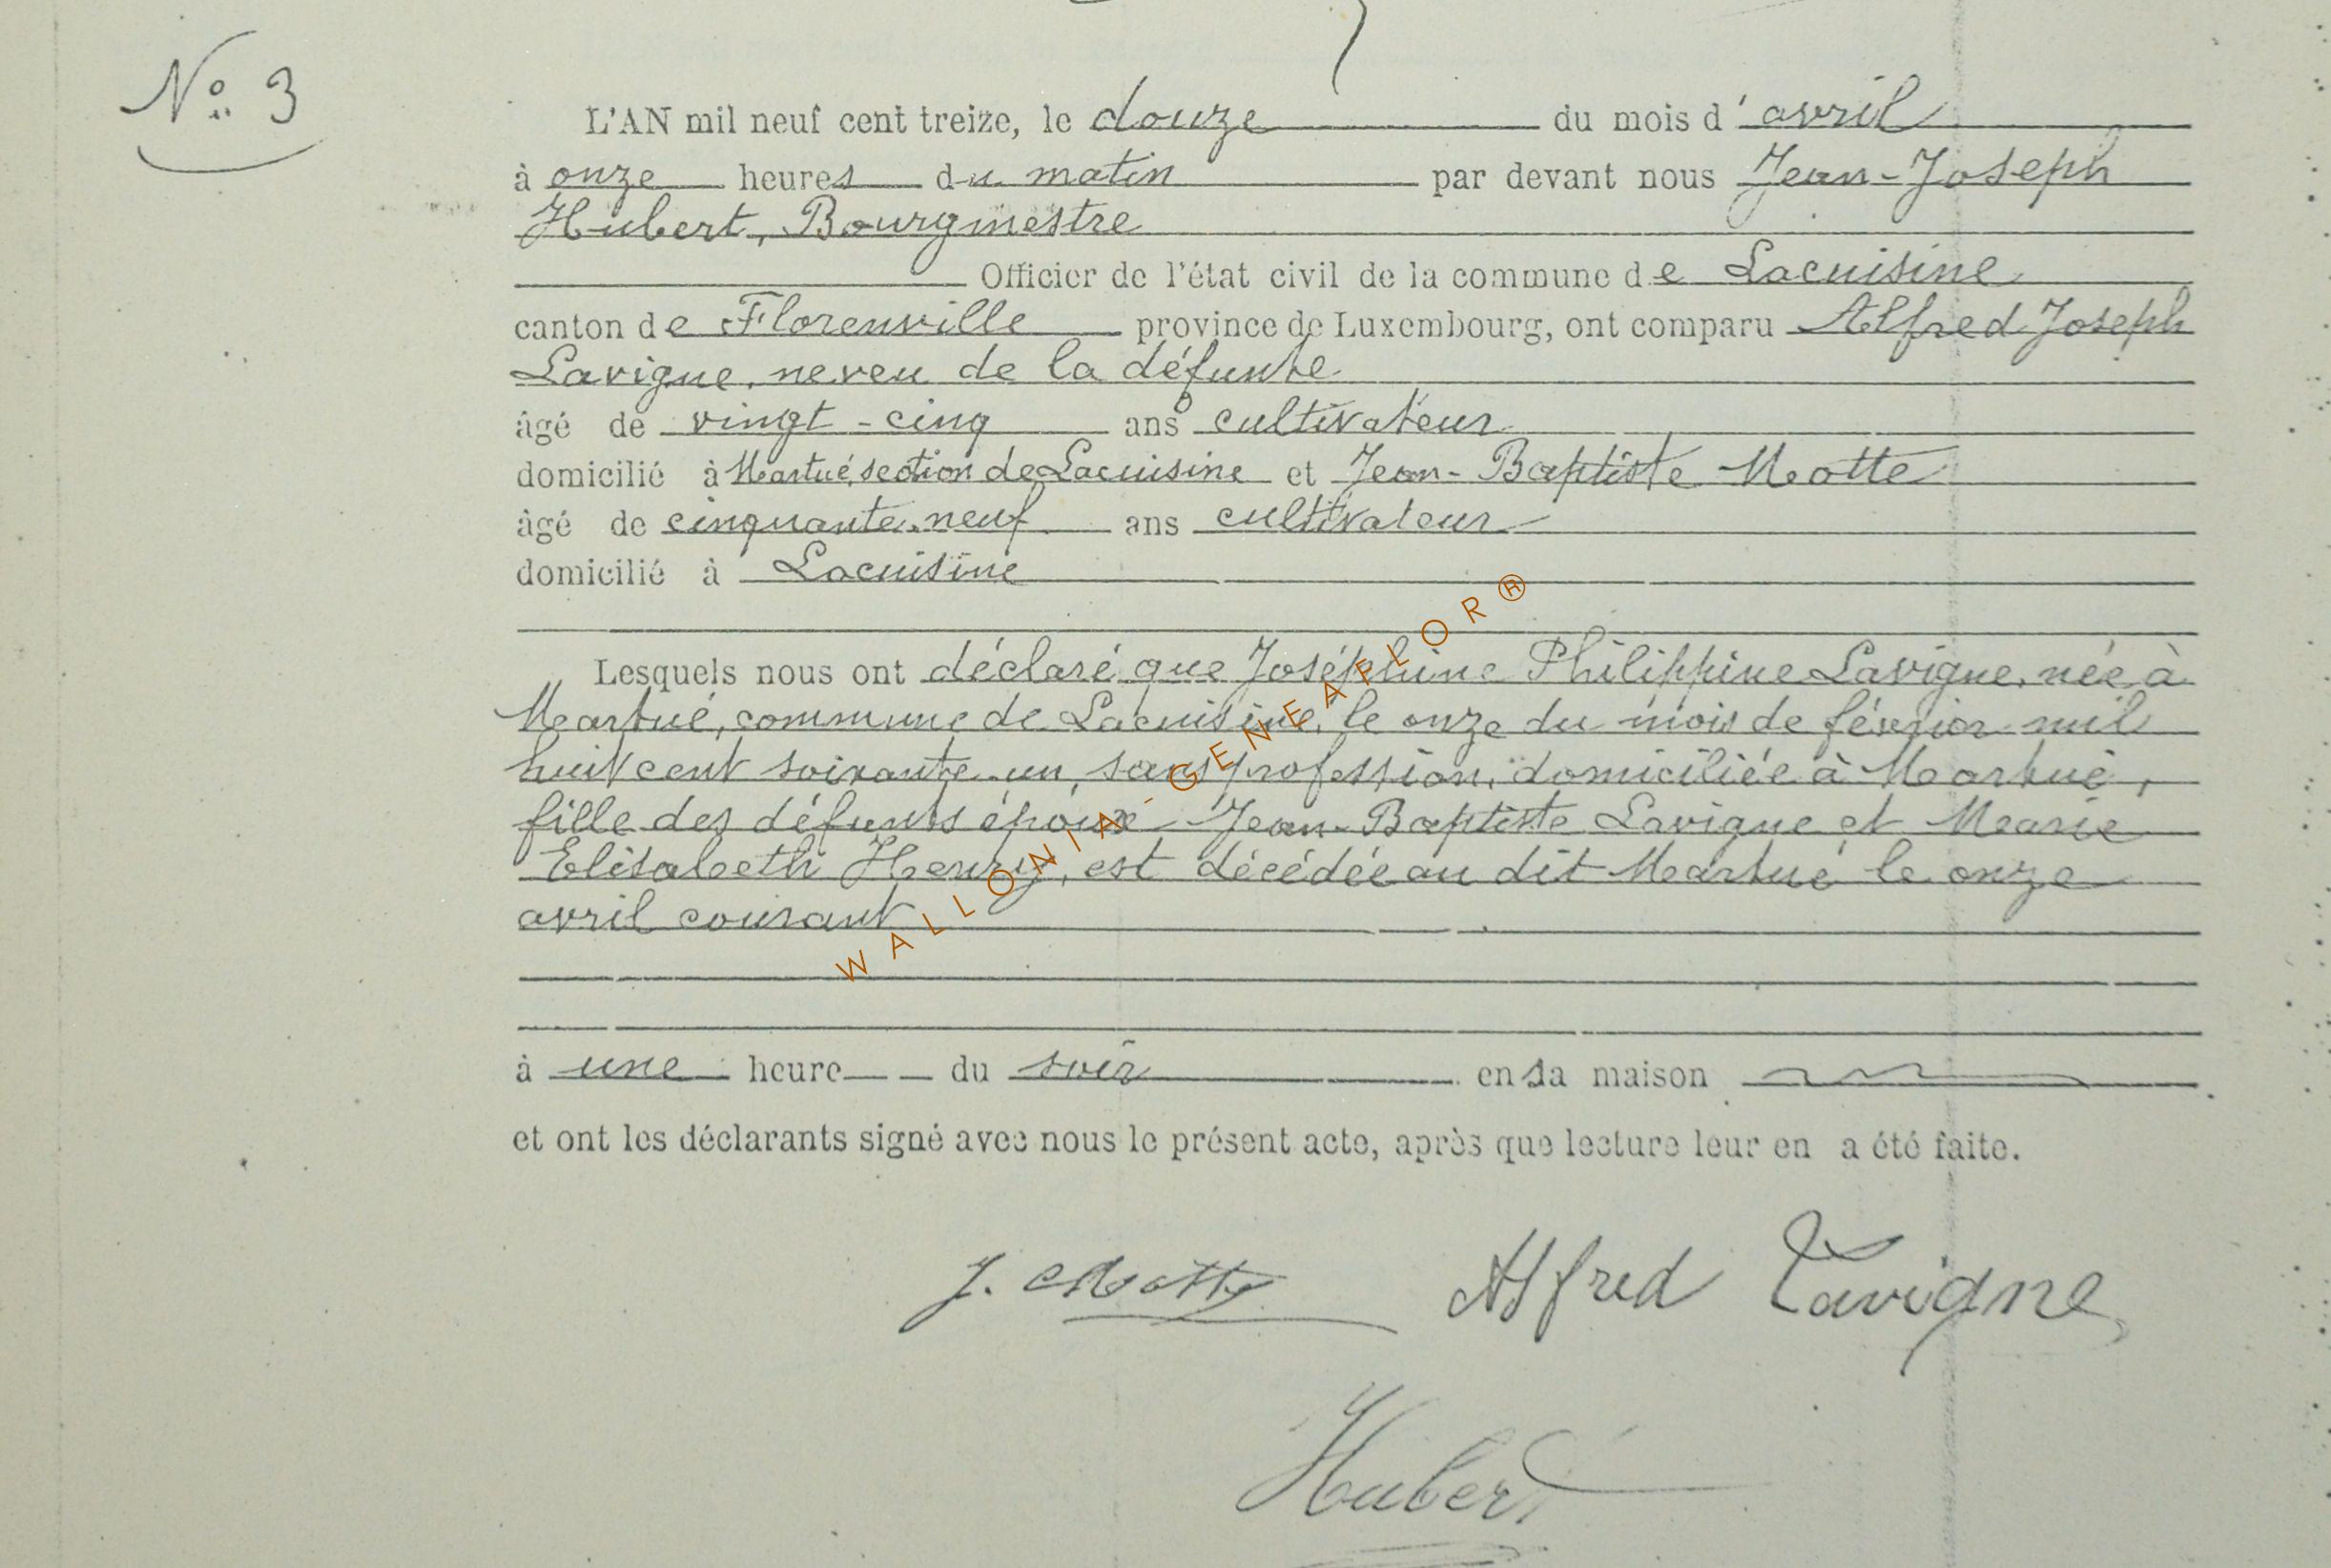 N° 3
L'AN mil neuf cent treize, le douze du mois d'avril
à onze heures du matin par devant nous Jean-Joseph
Hubert, Bourgmestre
Officier de l'état civil de la commune de Lacuisine
canton de Florenville province de Luxembourg, ont comparu Alfred Joseph
Lavigne, neveu de la défunte
âgé de vingt-cinq ans cultivateur
domicilié à Martué, section de Lacuisine et Jean-Baptiste Motte
âgé de cinquante-neuf ans cultivateur
domicilié à Lacuisine
Lesquels nous ont déclaré que Joséphine Philippine Lavigne, née à
Martué, commune de Lacuisine, le onze du mois de février mil
huit cent soixante-un, sans profession, domiciliée à Martué,
fille des défunts époux Jean-Baptiste Lavigne et Marie
Elisabeth Henry, est décédée au dit Martué le onze
avril courant
à une heure du soir en sa maison
et ont les déclarants signé avec nous le présent acte, après que lecture leur en a été faite.
J. Motte Alfred Lavigne
Hubert
WALLONIA-GENEAFLOR®